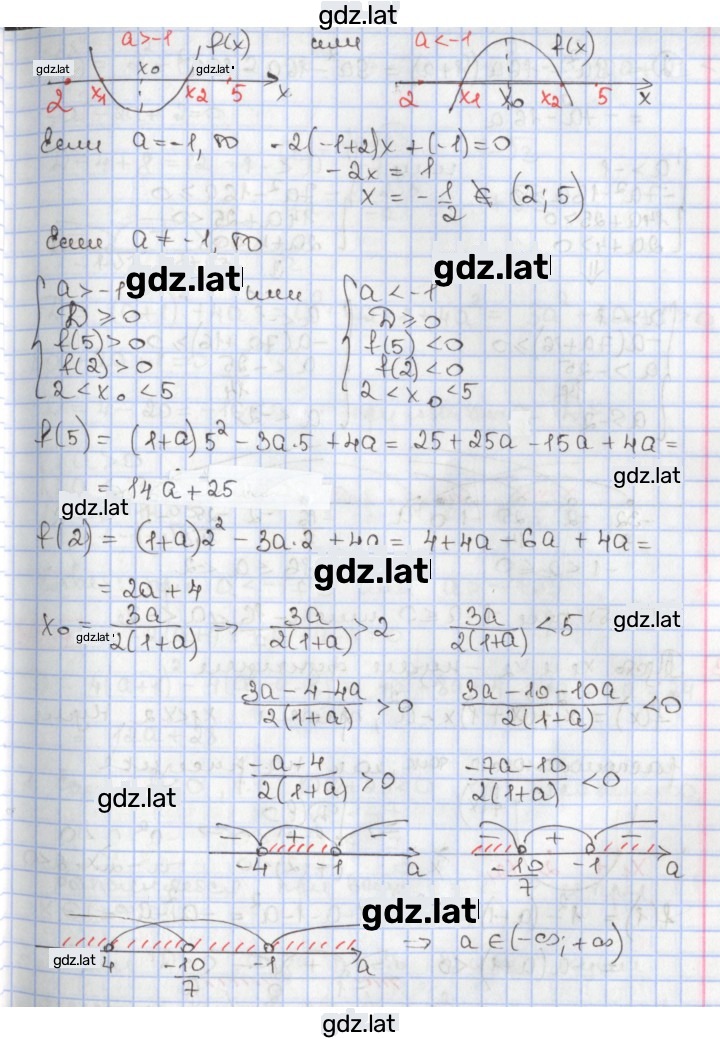 gdz.lat
a>-1 f(x) или a<-1 f(x)
gdz.lat x₀ gdz.lat
2 x₁ x₂ 5 x 2 x₁ x₀ x₂ 5 x
Если a=-1, то -2(-1+2)x+(-1)=0
-2x = 1
x = -1/2 ∉ (2; 5)
Если a ≠ -1, то
gdz.lat gdz.lat
{ a > -1 или { a < -1
D ≥ 0 D ≥ 0
f(5) > 0 f(5) < 0
f(2) > 0 f(2) < 0
2 < x₀ < 5 2 < x₀ < 5
f(5) = (1+a)5² - 3a·5 + 4a = 25 + 25a - 15a + 4a =
gdz.lat
= 14a + 25
gdz.lat
f(2) = (1+a)2² - 3a·2 + 4a = 4+4a - 6a + 4a =
gdz.lat
= 2a + 4
x₀ = 3a/2(1+a) ⇒ 3a/2(1+a) > 2 3a/2(1+a) < 5 gdz.lat
gdz.lat
(3a - 4 - 4a)/2(1+a) > 0 (3a - 10 - 10a)/2(1+a) < 0
(-a - 4)/2(1+a) > 0 (-7a - 10)/2(1+a) < 0
gdz.lat
- + - - + -
-4 -1 a -10/7 -1 a
gdz.lat
⇒ a ∈ (-∞; +∞)
gdz.lat 4 -10/7 -1 a
gdz.lat